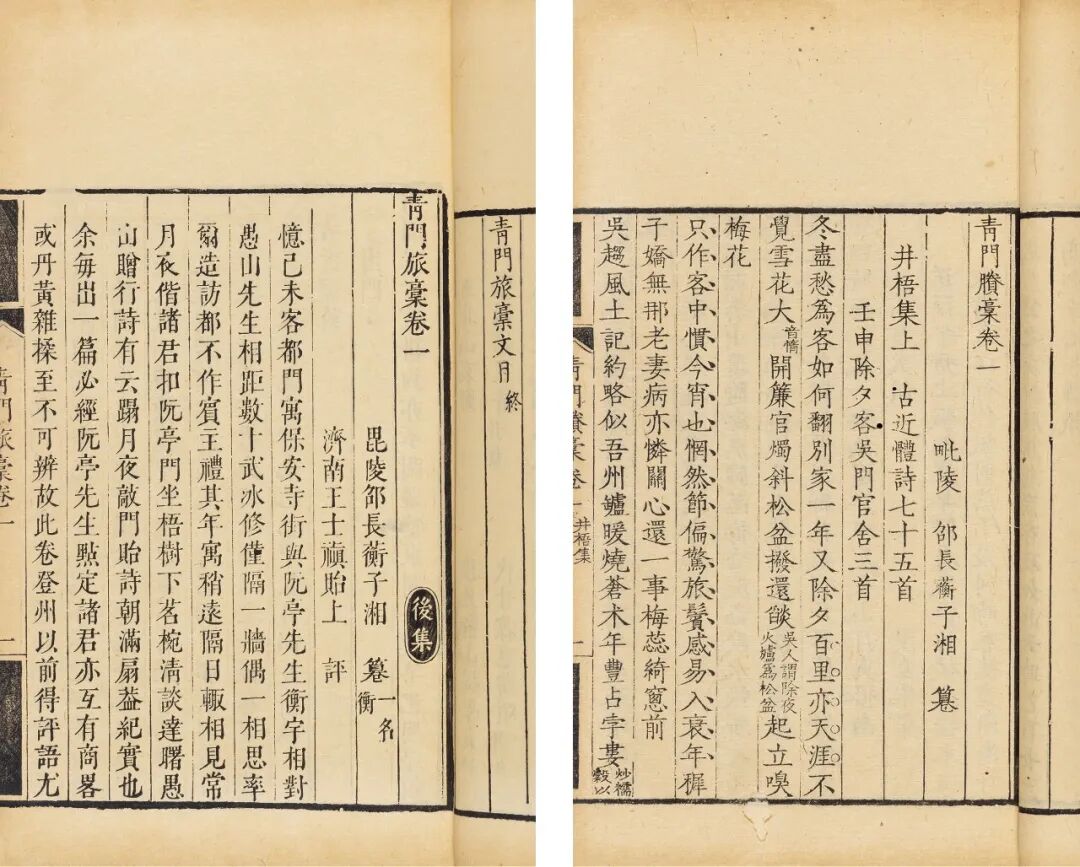 青門旅稾文目終
青門旅稾卷一
後集
毘陵邵長蘅子湘 纂 一名衡
濟南王士禛貽上 評
憶己未客都門寓保安寺街與阮亭先生衡宇相對
愚山先生相距數十武冰修僅隔一牆偶一相思率
爾造訪都不作賓主禮其年寓稍遠隔日輒相見常
月夜偕諸君扣阮亭門坐梧樹下茗椀淸談達曙愚
山贈行詩有云蹋月夜敲門貽詩朝滿扇葢紀實也
余每出一篇必經阮亭先生㸃定諸君亦互有商畧
或丹黃雜揉至不可辨故此卷登州以前得評語尤
青門旅稾卷一
一
青門賸稾卷一
毗陵 邵長蘅子湘 纂
井梧集上 古近體詩七十五首
壬申除夕客吳門官舍三首
冬盡愁爲客如何翻別家一年又除夕百里亦天涯不
覺雪花大音惰開簾官燭斜松盆撥還燄吳人謂除夜火爐爲松盆起立嗅
梅花
只作客中慣今宵也惘然節偏驚旅鬢感易入衰年穉
子嬌無那老妻病亦憐關心還一事梅蕊綺窻前
吳趨風土記約略似吾州爐暖燒蒼术年豐占字婁炒穤穀以
青門賸稾卷一 井梧集
一